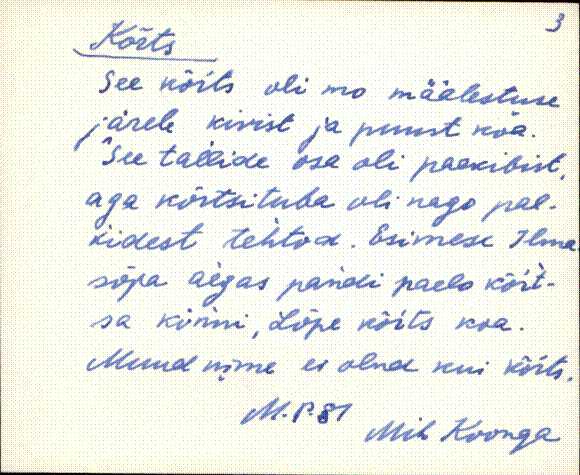 3
Kõrts
See kõrts oli mo määlestuse
järele kivist ja puust kõa.
See tallide osa oli paekibist,
aga kõrtsituba oli nago pal-
kidest tehtod. Esimese Ilma-
sõja aegas pandi paelo kõrt-
sa kinni, Lõpe kõrts koa.
Muud nime es olnd kui kõrts.
M.P. 81
Mih Koonga